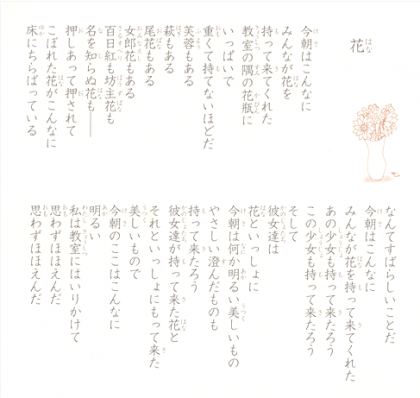 花
今朝はこんなに
みんなが花を
持って来てくれた
教室の隅の花瓶に
いっぱいで
重くて持てないほどだ
芙蓉もある
萩もある
尾花もある
女郎花もある
百日紅も坊主花も
名を知らぬ花も――
押しあって押されて
こぼれた花がこんなに
床にちらばっている
なんてすばらしいことだ
今朝はこんなに
みんなが花を持って来てくれた
あの少女も持って来たろう
この少女も持って来たろう
そして
彼女達は
花といっしょに
今朝は何か明るい美しいもの
やさしい澄んだものも
持って来たろう
彼女達が持って来た花と
それといっしょにもって来た
美しいもので
今朝のここはこんなに
明るい
私は教室にはいりかけて
思わずほほえんだ
思わずほほえんだ